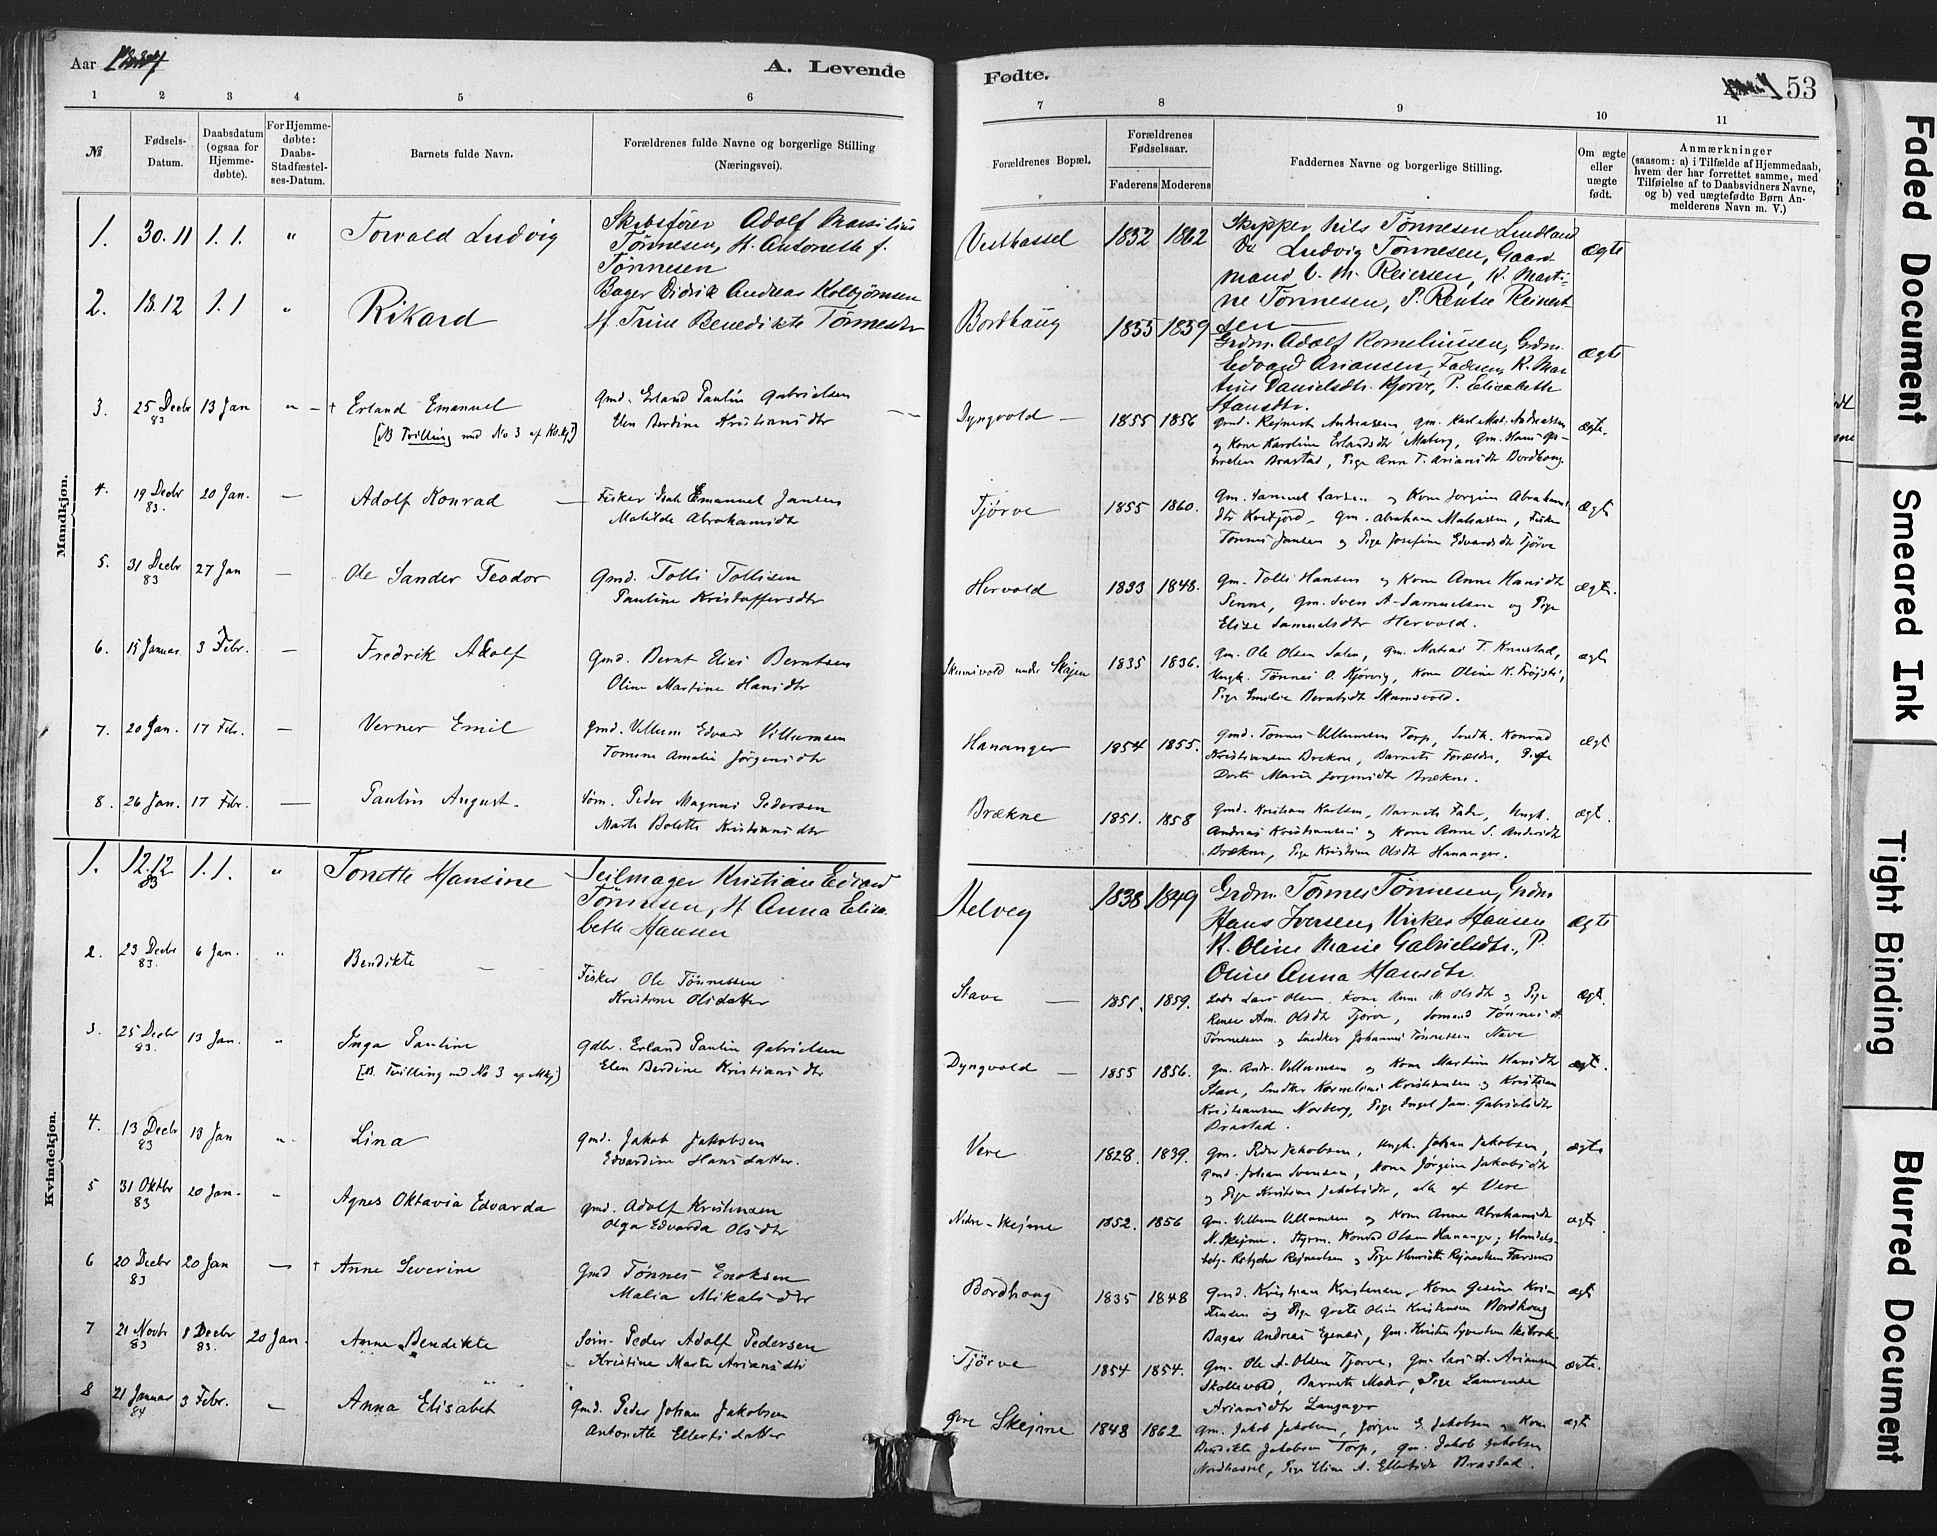 Aar 1884
A. Levende
1 2 3 4 5 6
№
Fødsels-
Datum.
Daabsdatum
(ogsaa for
Hjemme-
døbte).
For Hjemme-
døbte:
Daabs-
Stadfæstel-
ses-Datum.
Barnets fulde Navn.
Forældrenes fulde Navne og borgerlige Stilling
(Næringsvei).
Mandkjøn.
1. 30.11 1.1. " Torvald Ludvig
Skibsfører Adolf Mansilius
Tønnesen, H. Antonette f.
Tønnesen
2. 18.12 1.1 " Rikard
Bager Didrik Andreas Kolbjørnsen
H. Trine Benedikte Tønnesdtr
3. 25 Decbr 83 13 Jan " - † Erland Emanuel
[NB Tvilling med No 3 af Kv.kj.]
Gmd. Erland Paulin Gabrielsen
Elen Berdine Kristiansdtr
4. 19 Decbr 83. 20 Jan. — Adolf Konrad —
Fisker Isak Emanuel Jansen
Matilde Abrahamsdtr
5. 31 Decbr 83 27 Jan — Ole Sander Teodor
Gmd. Tolli Tollisen
Pauline Kristoffersdtr
6. 15 Januar. 3 Febr. — Fredrik Adolf
Gmd. Bernt Elias Berntsen
Oline Martine Hansdtr
7. 20 Jan. 17 Febr. — Verner Emil
Gmd. Villum Edvard Villumsen
Tomine Amalie Jørgensdtr
8. 26 Jan. 17 Febr. — Paulin August.
Søm. Peder Magnus Pedersen
Marte Bolette Kristiansdtr
Kvindekjøn.
1. 12.12 83 1.1. " Tonette Hansine
Seilmager Kristian Edvard
Tønnesen, H. Anna Elisa-
beth Hansen
2. 23 Decbr 83. 6 Jan. " Bendikte —
Fisker Ole Tønnessen
Kristine Olsdatter
3. 25 Decbr 83. 13 Jan. " Inga Pauline
[NB. Tvilling med No 3 af Mkj]
Gdbr. Erland Paulin Gabrielsen
Elen Berdine Kristiansdtr
4. 13 Decbr 83 13 Jan " Lina
Gmd. Jakob Jakobsen
Edvardine Hansdatter.
5 31 Oktbr 83 20 Jan. " Agnes Oktavia Edvarda
Gmd. Adolf Kristensen
Olga Edvarda Olsdtr
6 20 Decbr 83 20 Jan — † Anne Severine
Gmd Tønnes Enoksen
Malia Mikalsdtr
7 21 Novbr 83 1 Decbr 83. 20 Jan. Anne Bendikte
Søm. Peder Adolf Pedersen
Kristine Marte Ariansdtr
8 21 Januar 84 3 Febr. — Anna Elisabet
Gmd. Peder Johan Jakobsen
Antonette Ellertsdatter
Fødte.
53
7 8 9 10 11
Forældrenes Bopæl.
Forældrenes
Fødselsaar.
Faderens Moderens
Faddernes Navne og borgerlige Stilling.
Om ægte
eller
uægte
født.
Anmærkninger
(saasom: a) i Tilfælde af Hjemmedaab,
hvem der har forrettet samme, med
Tilføielse af to Daabsvidners Navne,
og b) ved uægtefødte Børn An-
melderens Navn m. V.)
Vesthassel 1832 1862 ægte
Skipper Nils Tønnesen Lindland
Do Ludvig Tønnesen, Gaard
mand C. M. Reiersen, K. Marti-
ne Tønnesen, P. Rentse Reinert
sen —
Bordhaug 1855 1859 ægte
Grdm. Adolf Korneliussen, Grdm.
Edvard Ariansen, Faderen, K. Mar
tine Danielsdtr. Kjørve, P. Elisabeth
Hansdtr.
Dyngvold — 1855 1856 ægte.
Gmd. Rejnert Andreassen, Gm. Karl Mat. Andreassen
og Kone Karoline Erlandsdtr Maberg, Gm. Hans Ga-
brielsen Brastad, Pige Ann T. Ariansdtr Bordhoug.
Tjørve 1855 1860. ægte
Gm. Samuel Larsen og Kone Jorgine Abrahams
dtr Kvitjord, Gm. Abraham Matiassen, Fisker
Tønnes Jansen og Pige Josefine Edvardsdtr Tjørve
Hervold 1833 1848. ægte.
Gm. Tolli Hansen og Kone Anne Hansdtr
Penne, Gm. Sven A. Samuelsen og Pige
Elise Samuelsdtr Hervold.
Skumsvold under Skejen 1835 1836. ægte
Gm. Ole Olsen Salen, Gm. Matias T. Knivstad,
Ungk. Tønnes O. Kjørvig, Kone Oline K. Frøjsti,
Pige Emilie Berntsdtr Skumsvold.
Hananger 1854 1855. ægte
Gmd. Tønnes Villumsen Torp, Smdk. Konrad
Kristiansen Brekne, Barnets Forældre, Pige
Dorte Marie Jørgensdtr Brækne.
Brækne 1851. 1858 ægte.
Gmd. Kristian Karlsen, Barnets Fader, Ungk.
Andreas Kristiansen og Kone Anne S. Andersdtr
Brækne, Pige Kristine Olsdtr Hananger.
Helveg 1838 1849 ægte
Grdm. Tønnes Tønnesen, Grdm
Hans Iversen, Virker Hansen
K. Oline Marie Gabrielsdtr., P.
Oline Anna Hansdtr.
Stave — 1851. 1859. ægte.
Lods Lars Olsen, Kone Anne M. Olsdtr og Pige
Rense Am. Olsdtr Tjørve, Sømand Tønnes A.
Tønnessen og Snedker Johannes Tønnessen Stave
Dyngvold — 1855 1856. ægte.
Gm. Andr. Villumsen og Kone Martine Hansdtr
Stave, Snedker Kornelius Kristiansen og Kristian
Kristiansen Norberg, Pige Ingel Jan. Gabrielsdtr
Brastad.
Vere 1828. 1839. ægte
Gm. Peder Jakobsen, Ungk. Johan Jakobsen,
Gmd. Johan Svensen, Kone Jørgine Jakobsdtr
og Pige Kristine Jakobsdtr, alle af Vere
Nedre-Skejme 1852. 1856 ægte
Gm. Villum Villumsen og Kone Anne Abrahamsdtr
N. Skejme. Styrm. Konrad Olsen Hananger, Handels-
betj. Rejnertsen og Pige Henriette Rejnertsen Farsund
Bordhoug 1835 1848 ægte
Gmd. Kristian Kristensen, Kone Gesine Kri-
stensen og Pige Grete Olive Kristensen Bordhoug
Bager Andreas Egenæs, Gm. Kristen Syvertsen
Tjørve 1854 1854. ægte.
Gm. Ole A. Olsen Tjørve, Gm. Lars A. Ariansen
Skollevold, Barnets Moder, Pige Laurense
Ariansdtr Langager
Øvre Skejme 1848 1862 ægte
Gm. Jakob Jakobsen, Jørgen G. Jakobsen og Kone
Bendikte Jakobsen Torp, Gm. Jakob Jakobsen
Nordhassel, Pige Eline A. Ellertsdtr Brastad.
Faded Document
Smeared Ink
Tight Binding
Blurred Document